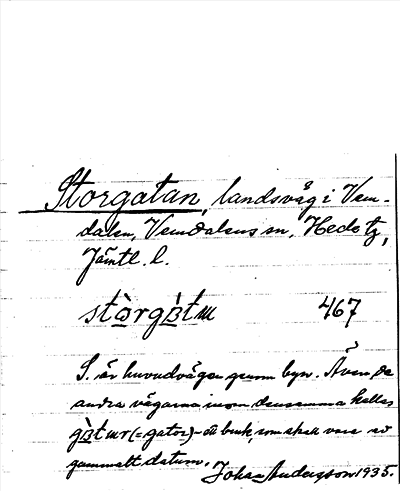 Storgatan, landsväg i Vem-
dalen, Vemdalens sn, Hede tg,
Jämtl. l.
stòrgàtɯ 467
S. är huvudvägen genom byn. Även de
andra vägarna inom densamma kallas
(= gator) – ett bruk, som skall vara av
gammalt datum. Johan Andersson 1935.